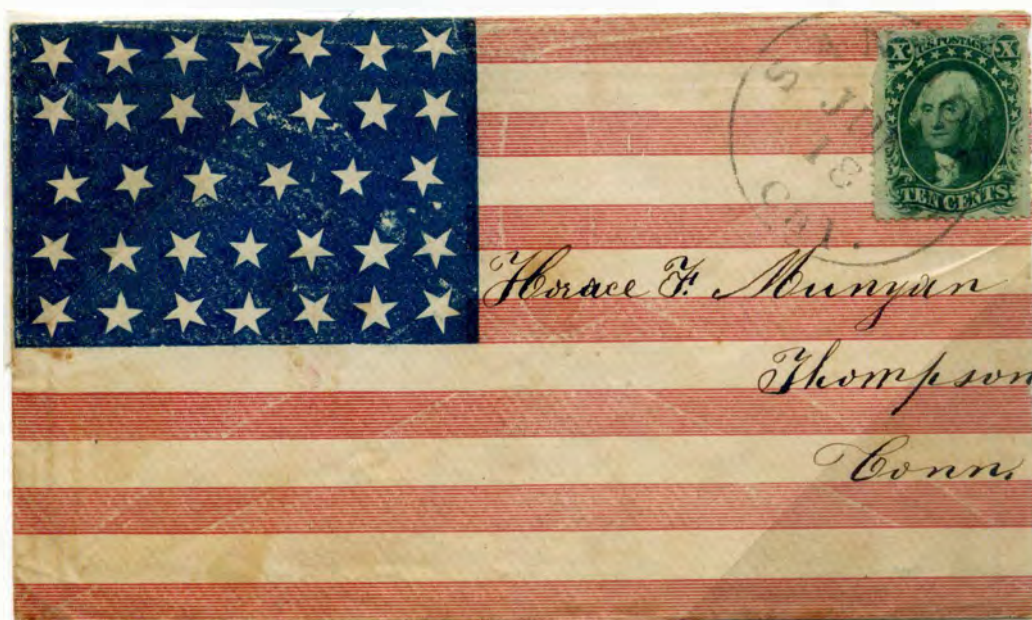 X U.S. POSTAGE X
TEN CENTS
18
Cal.
Horace F. Munyan
Thompson
Conn.